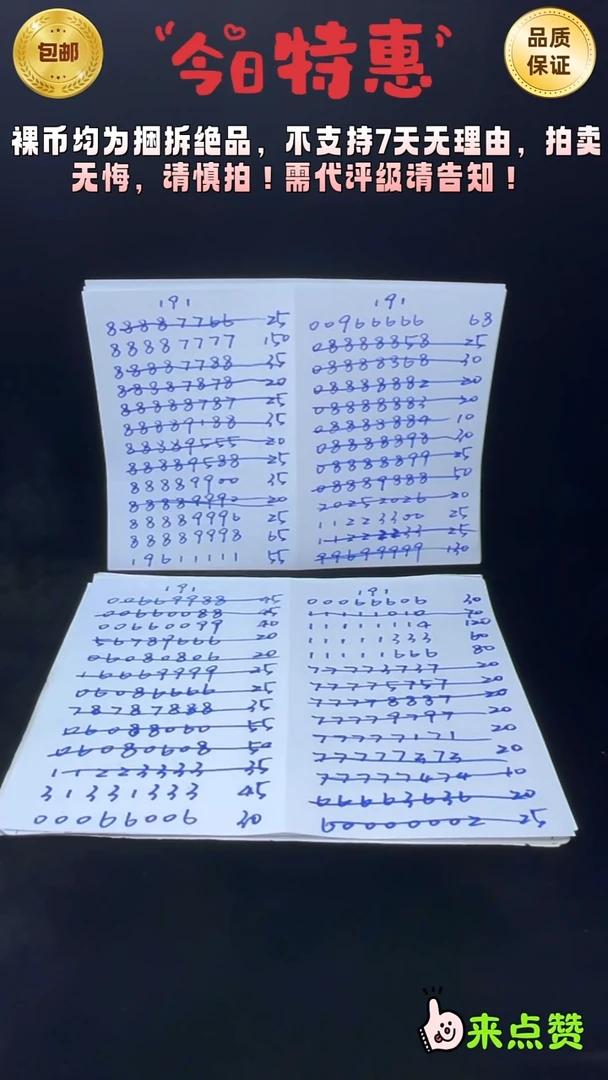 包邮
今日特惠
品质
保证
裸币均为捆拆绝品，不支持7天无理由，拍卖
无悔，请慎拍！需代评级请告知！
191
88887766 25
88887777 150
88887788 35
88887878 20
88888787 25
88889188 35
88889555 20
88889588 25
88889900 35
88889992 20
88889996 25
88889998 65
19611111 55
191
00966666 68
08888858 25
08888868 30
08888882 20
08888883 20
08888884 10
08888898 30
08888899 25
08889888 50
20252026 20
11223300 25
11222233 25
99699999 130
191
00669988 45
00660088 45
00660099 40
56789666 20
06080806 20
16669999 25
06086666 25
78787888 35
06088060 55
06080608 50
11223333 35
31331333 45
00066009 30
191
00066606 30
11111010 70
11111114 120
11111333 60
11111666 80
77773737 20
77775757 20
77778887 20
77779797 20
77777171 20
77777373 20
77777474 10
66663636 20
60000002 25
来点赞